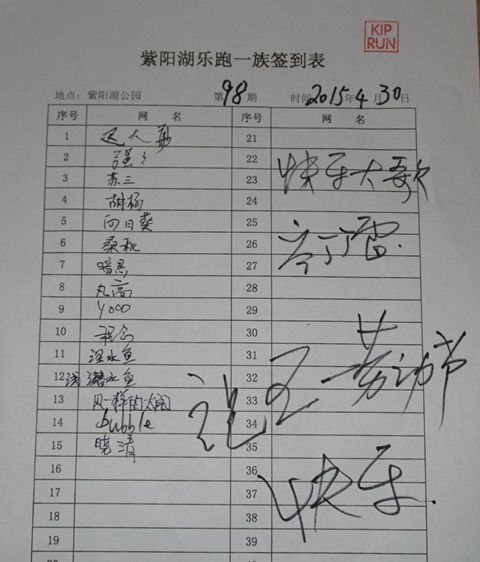 KIP
RUN
紫阳湖乐跑一族签到表
地点：紫阳湖公园 第98期 时间 2015年4月30日
序号 网 名 序号 网 名
1 达人 21
2 强 22
3 苏三 23
4 胡杨 24
5 向日葵 25
6 桑 26
7 暗 27
8 丸高 28
9 yooo 29
10 30
11 深水鱼 31
12 浅潜水鱼 32
13 风一样的 33
14 bubble 34
15 晓清 35
16 36
17 37
18 38
19 39
快乐大
雷
祝
劳动节
快乐.